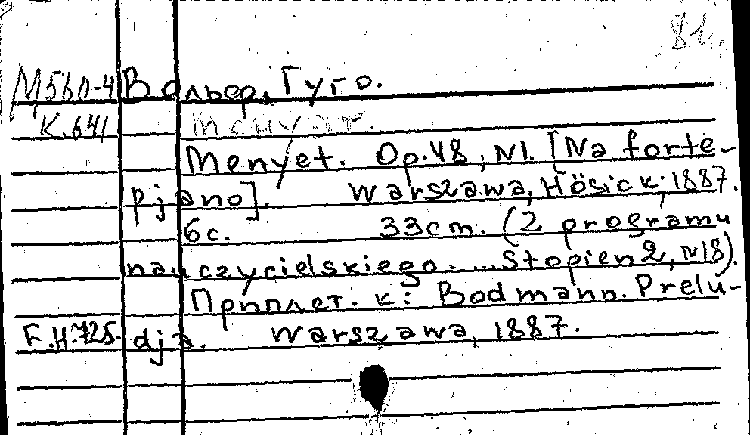 81.
М560-4 Вольер, Гуго.
К.641 Менуэт.
Menyet. Op. 48, N1. [Na forte-
pjano]. Warszawa, Hösick, 1887.
6с. 33cm. (Z programu
nauczycielskiego.... Stopień 2, N18).
Приплет. к: Bodmann. Prelu-
F.H.725. dja. Warszawa, 1887.